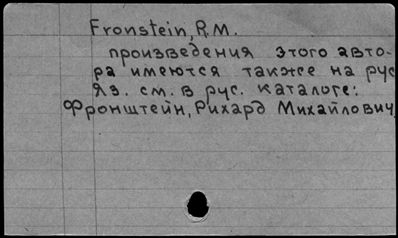 Fronstein, R.M.
произведения этого авто-
ра имеются также на рус
яз. см. в рус. каталоге:
Фронштейн, Рихард Михайлович,